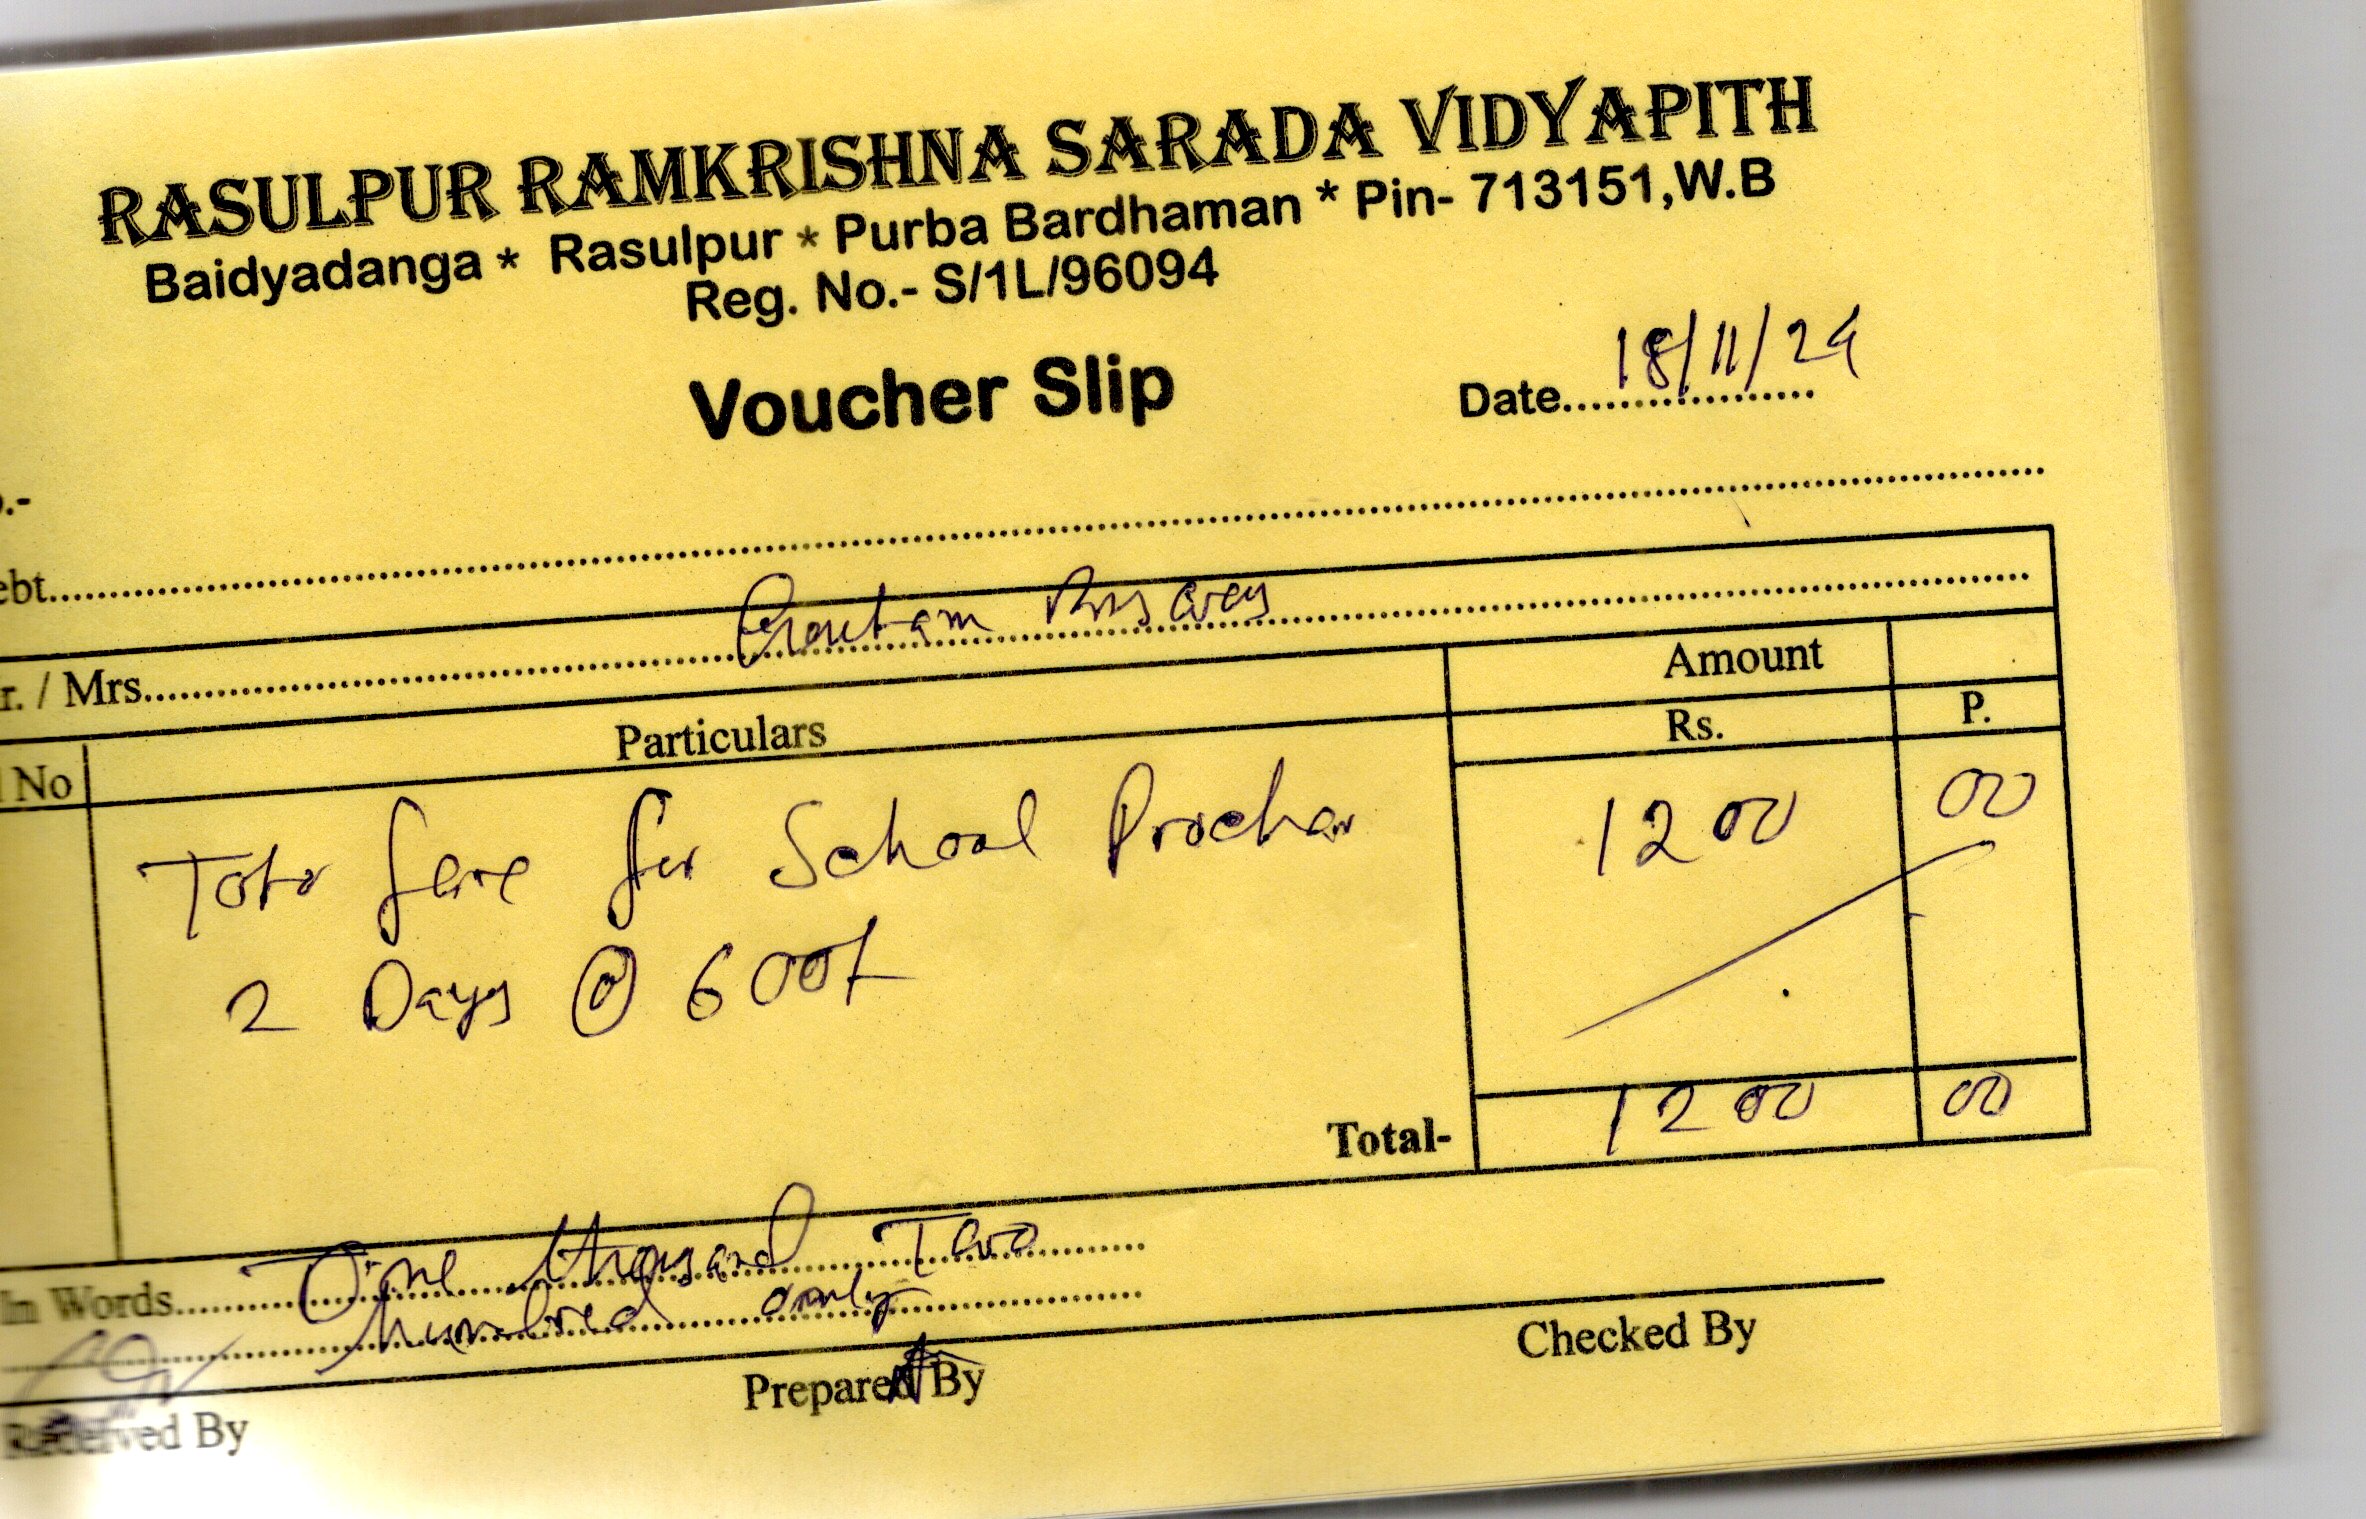 RASULPUR RAMKRISHNA SARADA VIDYAPITH
Baidyadanga * Rasulpur * Purba Bardhaman * Pin- 713151,W.B
Reg. No.- S/1L/96094
Voucher Slip
Date 18/11/24
ebt
r. / Mrs. Goutam
Particulars
Amount
No
Rs.
P.
Toto fare for School Prochar 1200 00
2 Days @ 600/-
Total- 1200 00
In Words One thousand Two
hundred only
Received By
Prepared By
Checked By